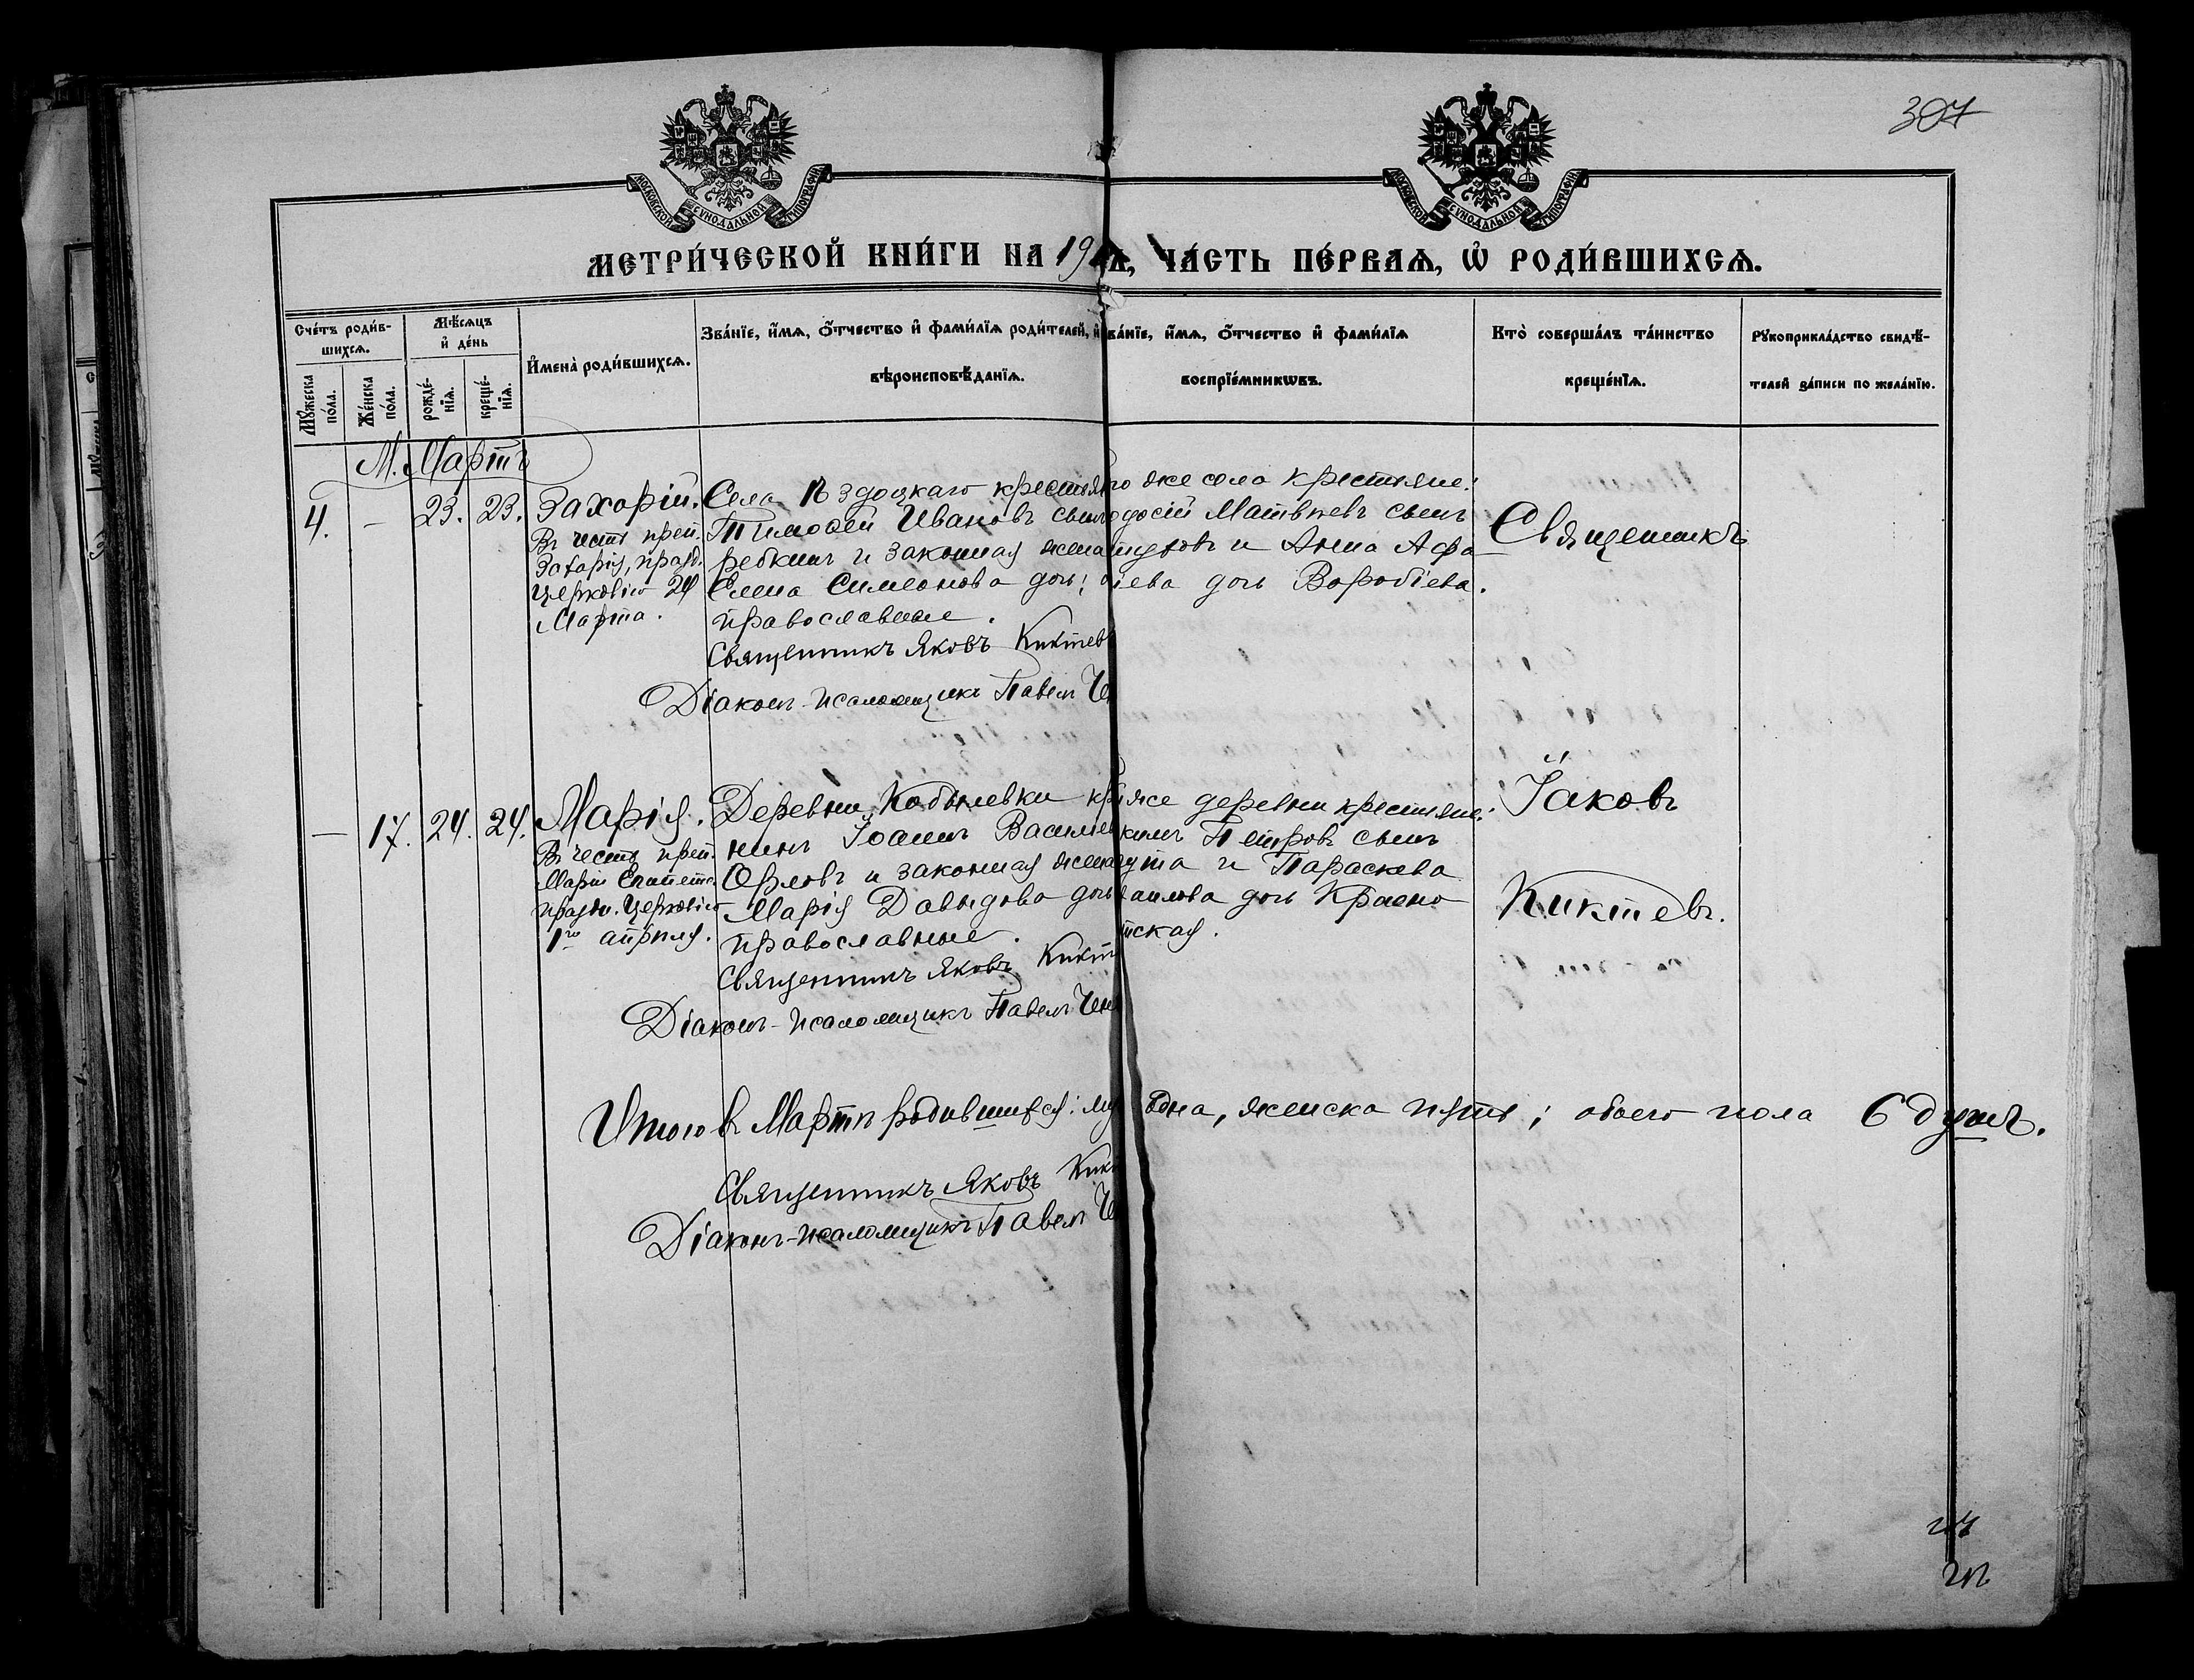 307
МОСКОВСКОЙ СѴНОДАЛЬНОЙ ТИПОГРАФІИ
МОСКОВСКОЙ СѴНОДАЛЬНОЙ ТИПОГРАФІИ
МЕТРИ́ЧЕСКОЙ КНИ́ГИ НА 19
ЧА́СТЬ ПЕ́РВАѦ, Ѡ҆ РОДИ́ВШИХСѦ.
Сче́тъ роди́в-
шихсѧ.
Мꙋ́жеска по́ла.
Же́нска по́ла.
Мѣ́сѧцъ
и҆ де́нь
рожде́-
нїѧ.
креще́-
нїѧ.
И҆мена̀ роди́вшихсѧ.
Зва́нїе, и҆́мѧ, ѻ҆́тчество и҆ фами́лїѧ роди́телей, и҆
вѣроисповѣ́данїѧ.
ва́нїе, и҆́мѧ, ѻ҆́тчество и҆ фами́лїѧ
воспрїе́мникѡвъ.
Кто̀ соверша́лъ та́инство
креще́нїѧ.
Рꙋкоприкла́дство свидѣ́-
телей за́писи по жела́нїю.
М. Мартъ
4.
—
23.
23.
Захорій.
Въ честь преп.
Захарія, празд.
церковію 24
Марта.
Села Ѣздоцкаго крестья
Тимофей Ивановъ сынъ
ребкинъ и законная жена
Елена Симеонова дочь;
православные.
Священникъ Яковъ Киктевъ
Діаконъ-псаломщикъ Павелъ
го же села крестьяне:
одосій Матвѣевъ сынъ
и Анна Афа-
ева дочь Воробіева.
Священникъ
—
17.
24.
24.
Марія.
Въ честь преп.
Маріи Египетс.
праздн. церковію
1го апрѣля.
Деревни Кобылевки кр
нинъ Іоаннъ Василіе
Орловъ и законная жена
Марія Давыдова дочь
православные.
Священникъ Яковъ Кикт
Діаконъ-псаломщикъ Павелъ
же деревни крестьяне:
Петровъ сынъ
и Параскева
аилова дочь Красно
тская.
Іаковъ
Киктевъ.
Итого въ Мартѣ родившихся: му
одна, женска пять; обоего пола 6 душъ.
Священникъ Яковъ Кик
Діаконъ-псаломщикъ Павелъ